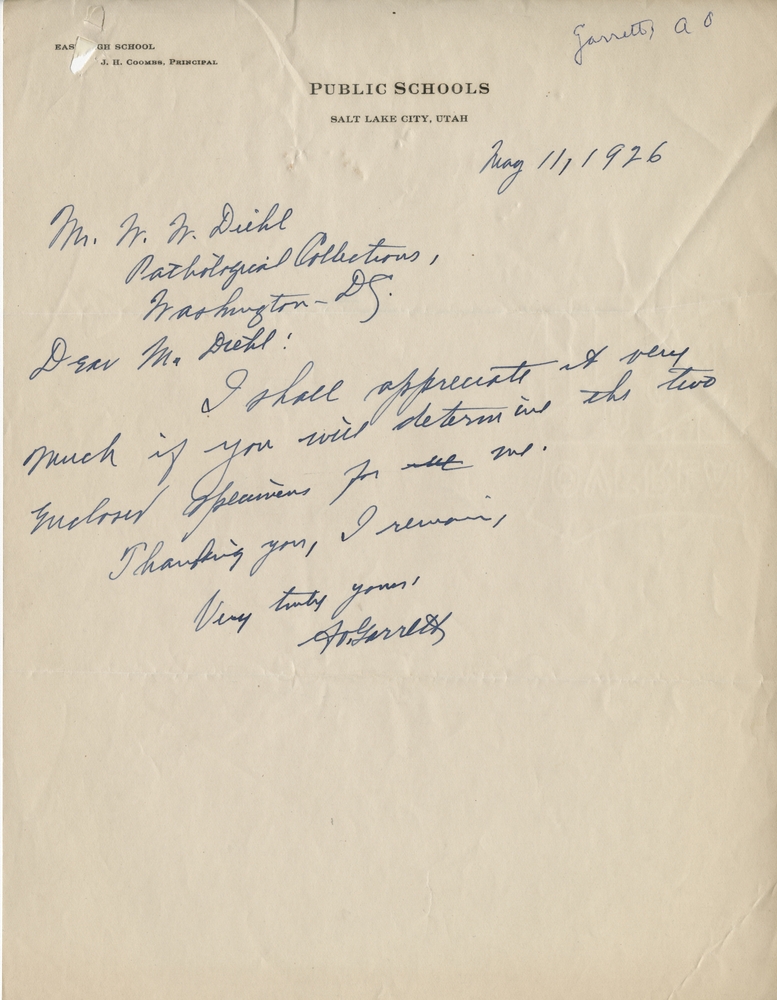 Garrett, A O
EAS GH SCHOOL
J. H. COOMBS, PRINCIPAL
PUBLIC SCHOOLS
SALT LAKE CITY, UTAH
May 11, 1926
Mr. W. W. Diehl
Pathological Collections,
Washington - D.C.
Dear Mr. Diehl:
I shall appreciate it very
much if you will determine the two
enclosed specimens for me.
Thanking you, I remain,
Very truly yours,
A.O. Garrett